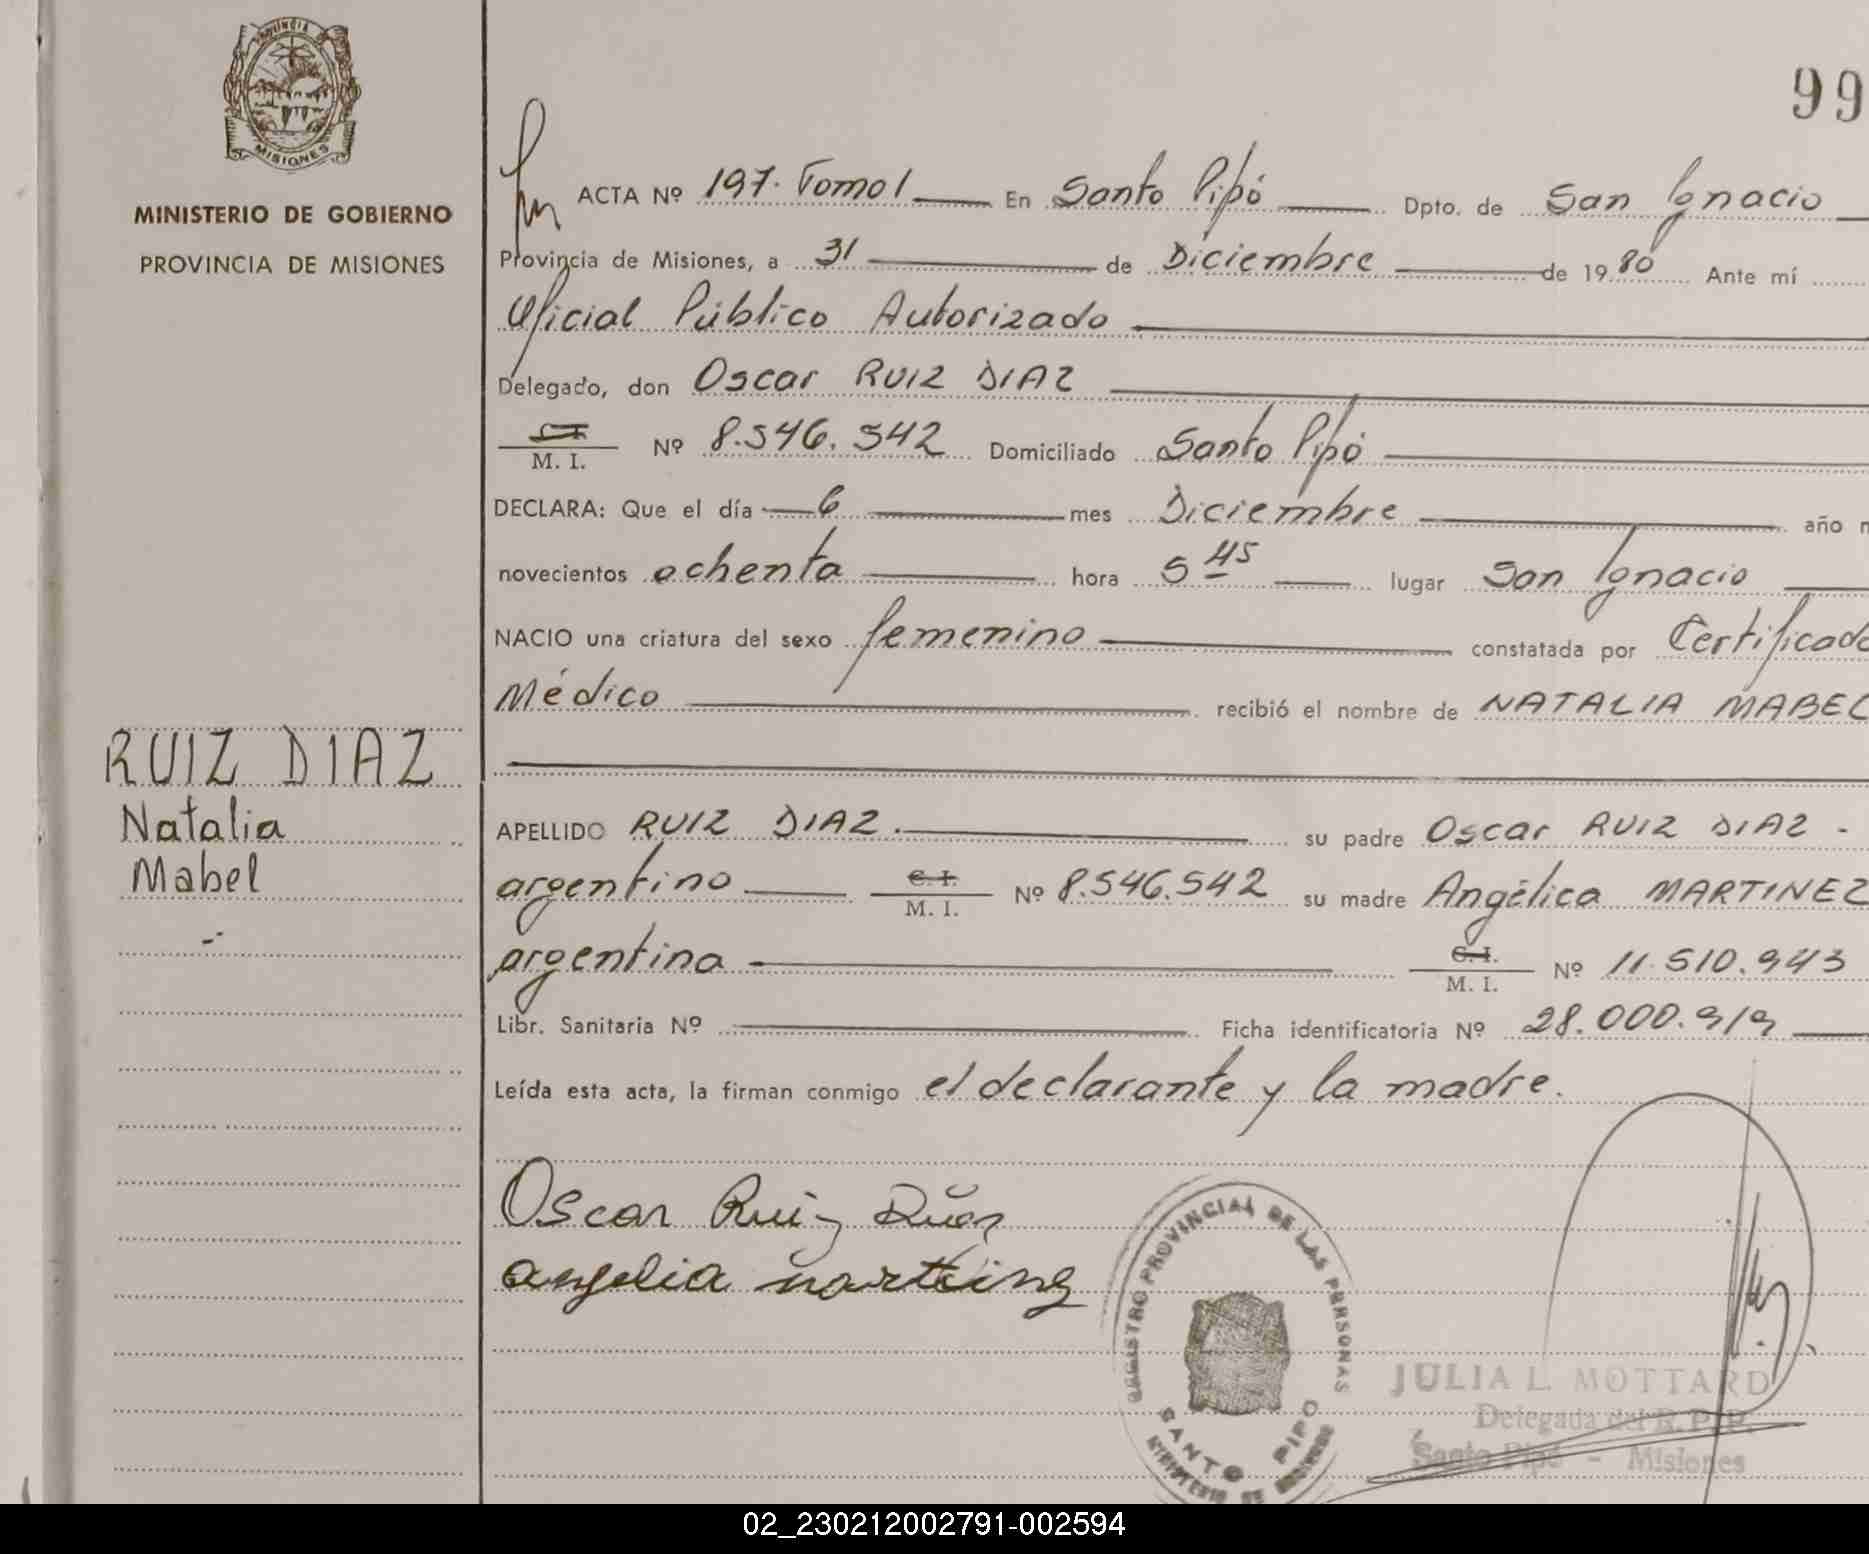 PROVINCIA DE
MISIONES
MINISTERIO DE GOBIERNO
PROVINCIA DE MISIONES
99
ACTA Nº 197. Tomo I En Santo Pipó Dpto. de San Ignacio
Provincia de Misiones, a 31 de Diciembre de 1980 Ante mí
Oficial Público Autorizado
Delegado, don Oscar RUIZ DIAZ
C. I.
M. I. Nº 8.546.542 Domiciliado Santo Pipó
DECLARA: Que el día 6 mes Diciembre año
novecientos ochenta hora 5 45 lugar San Ignacio
NACIO una criatura del sexo femenino constatada por Certificado
Médico recibió el nombre de NATALIA MABEL
RUIZ DIAZ
Natalia
Mabel
APELLIDO RUIZ DIAZ. su padre Oscar RUIZ DIAZ -
argentino C. I. M. I. Nº 8.546.542 su madre Angélica MARTINEZ
argentina C. I. M. I. Nº 11.510.943
Libr. Sanitaria Nº Ficha identificatoria Nº 28.000.919
Leída esta acta, la firman conmigo el declarante y la madre.
Oscar Ruiz Diaz
angelia martinez
REGISTRO PROVINCIAL DE LAS PERSONAS
SANTO PIPO
MINISTERIO DE GOBIERNO
JULIA L. MOTTARD
Delegada del R. P. P.
Santo Pipó - Misiones
02_230212002791-002594